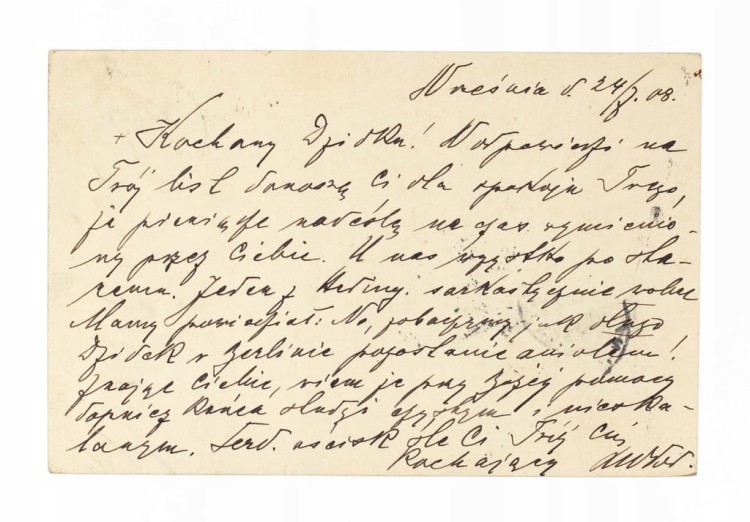 Września d. 24/7. 08.
+ Kochany Dzidku! W odpowiedzi na
Twój list donoszę Ci dla spokoju Twego,
że pieniądze nadeślę na czas wymienio-
ny przez Ciebie. U nas wszystko po sta-
remu. Jeden z sarkastycznie wobec
Mamy powiedział: No, zobaczymy, jak długo
Dzidek w Berlinie pozostanie aniołem!
Znając Ciebie, wiem że przy Bożej pomocy
dopniesz końca studzi czystym i nieska-
lanym. Serd. uścisk śle Ci Twój Cię
kochający